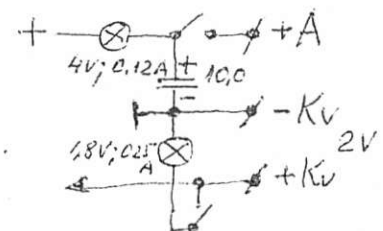 + +A
4V; 0,12A + 10,0
-
-Kv
2V
1,8V; 025
A
+Kv